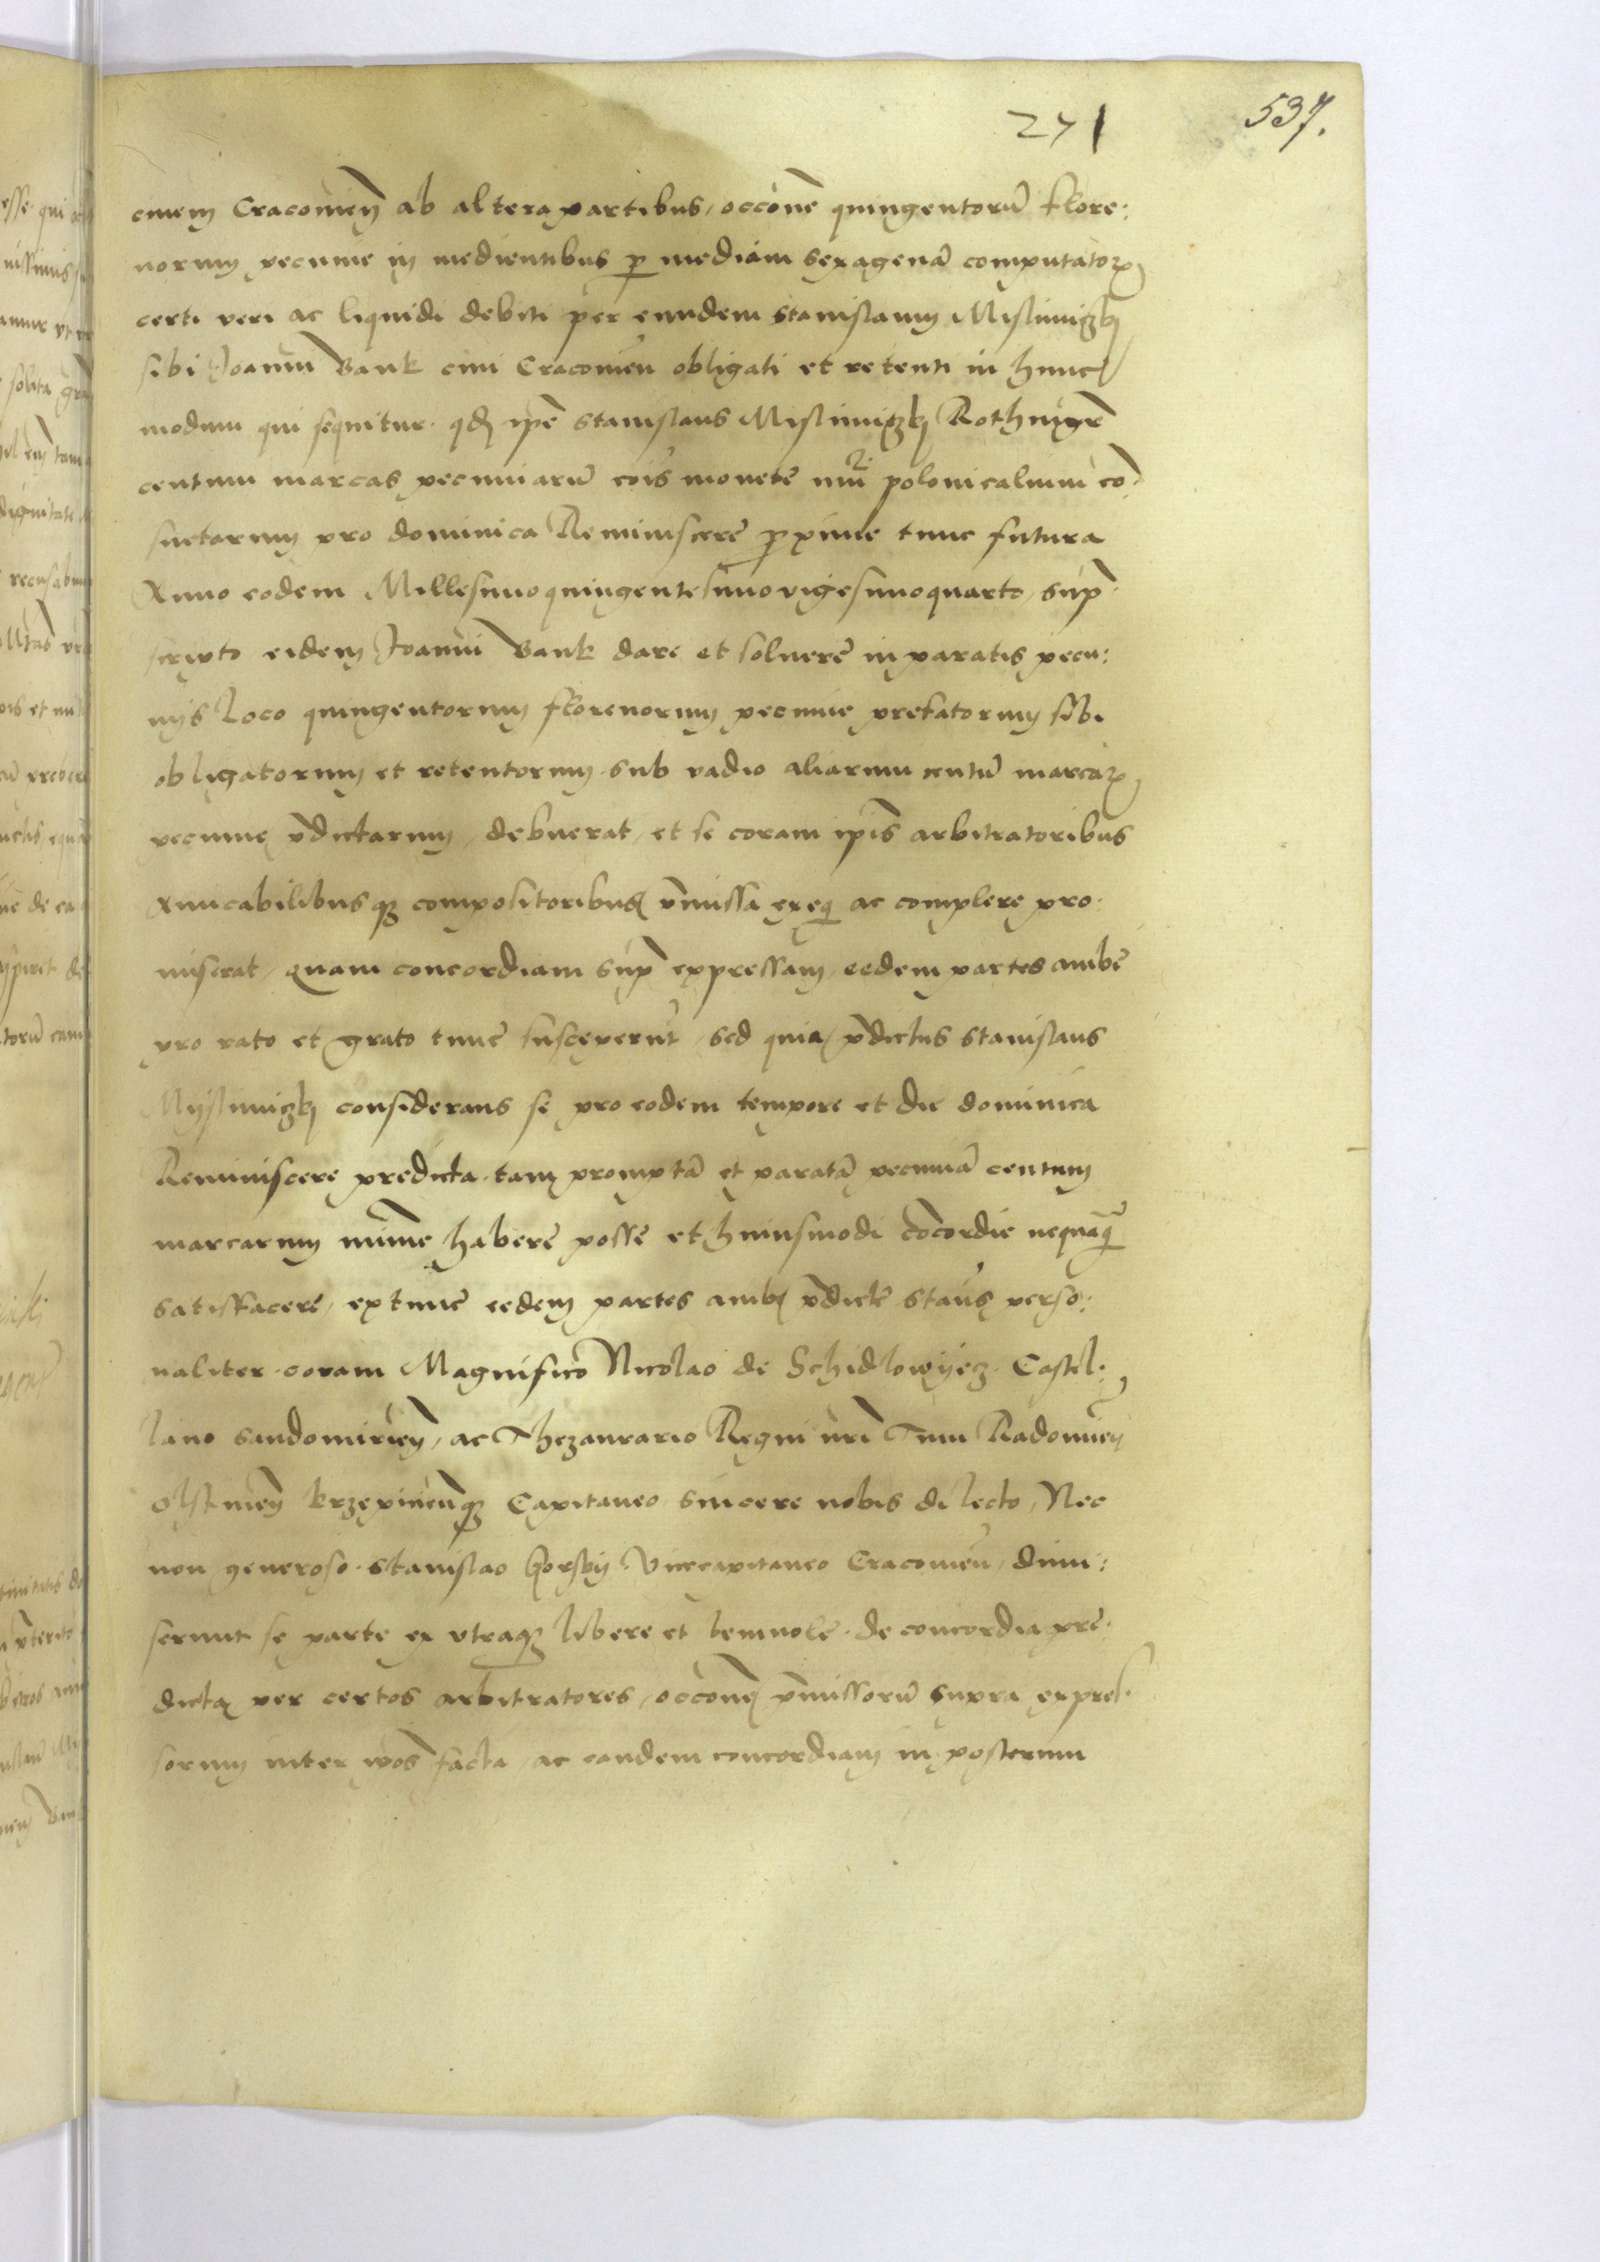 271
537.
ciuem Cracouieñ ab altera partibus, occõne quingentorũ flore:
norum pecunie in medientibus p mediam sexagenã computatoꝝ
certi veri ac liquidi debiti per eundem Stanislaum Mislinuiczkj
sibi Joanni Bank ciui Cracouieñ obligati et retenti in hunc
modum qui sequitur. qđ ipẽ Stanislaus Mislinuiczkj
centum marcas pecuniarũ cois monete polonicalium cõ
suetarum pro dominica Reminiscere pxime tunc futura
Anno eodem Millesimoquingentesimovigesimoquarto, sup
scripto eidem Joanni Bank dare et soluere in paratis pecu:
nijs loco quingentorum florenorum pecunie prefatorum sibi
obligatorum et retentorum. sub vadio aliarum centũ marcaꝝ
pecunie p̃dictarum, debuerat, et se coram ipis arbitratoribus
Amicabilibusqꝫ compositoribus p̃missa exeq ac complere pro:
miserat, Quam concordiam sup expressam, eedem partes ambe
pro rato et grato tunc susceperũt, sed quia p̃dictus Stanislaus
Myslinuiczkj considerans se pro eodem tempore et die dominica
Reminiscere predicta. tam promptã et paratã pecuniã centum
marcarum minime habere posse et huiusmodi cõcordie nequaq̃
satisfacere, extunc eedem partes ambe p̃dicte stañs perso:
naliter. coram Magnifico Nicolao de Schidlowyecz. Castel:
lano Sandomirieñ, ac Thezaurario Regni nr̃i Tum Radomieñ
Olstineñ krzepiceñqꝫ Capitaneo sincere nobis dilecto, Nec
non generoso. Stanislao Vicecapitaneo Cracouieñ, dimi:
serunt se parte ex vtraqꝫ libere et beniuole. de concordia pre:
dicta per certos arbitratores, occõne p̃missorũ supra expres:
sorum inter ipos facta, ac eandem concordiam in posterum